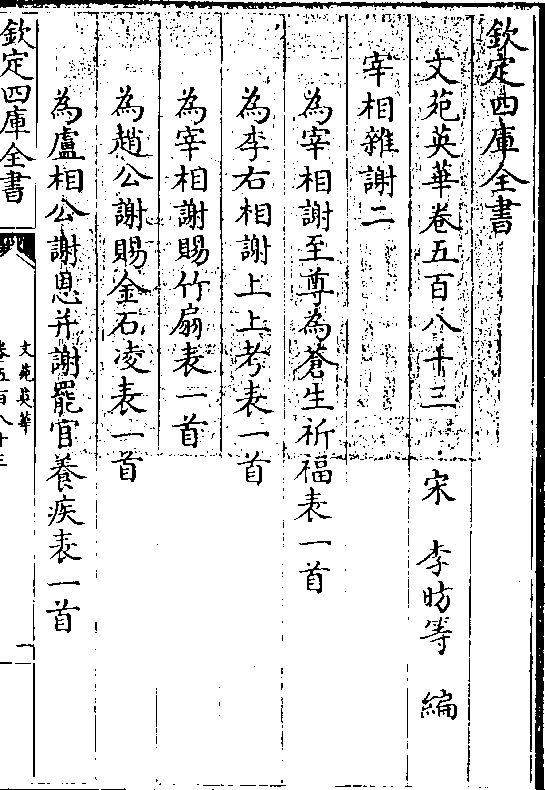 欽定四庫全書
文苑英華卷五百八十三　宋　李昉等　編
宰相雜謝二
為宰相謝至尊為蒼生祈福表一首
為李右相謝上上考表一首
為宰相謝賜竹扇表一首
為趙公謝賜金石凌表一首
為盧相公謝恩并謝罷官養疾表一首
欽定四庫全書
文苑英華
卷五百八十三
一